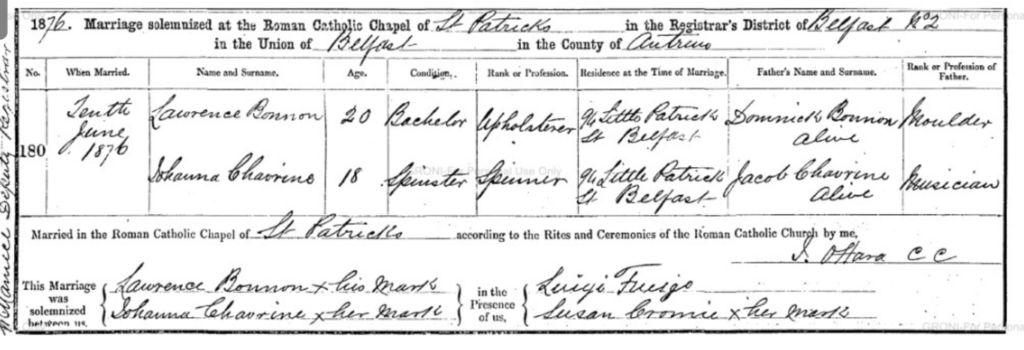 1876. Marriage solemnized at the Roman Catholic Chapel of St Patricks in the Registrar's District of Belfast No 2
in the Union of Belfast in the County of Antrim
No. When Married. Name and Surname. Age. Condition. Rank or Profession. Residence at the Time of Marriage. Father's Name and Surname. Rank or Profession of Father.
180 Tenth June 1876 Lawrence Bonnon 20 Bachelor Upholsterer 94 Little Patrick St Belfast Dominick Bonnon alive Moulder
Johanna Chavrine 18 Spinster Spinner 94 Little Patrick St Belfast Jacob Chavrine Alive Musician
Married in the Roman Catholic Chapel of St Patricks according to the Rites and Ceremonies of the Roman Catholic Church by me,
J. OHara C C
This Marriage was solemnized between us, Lawrence Bonnon x his Mark in the Presence of us, Luigi
Johanna Chavrine x her Mark Susan Cromie x her Mark
Deputy Registrar
GRONI-For Personal Use Only